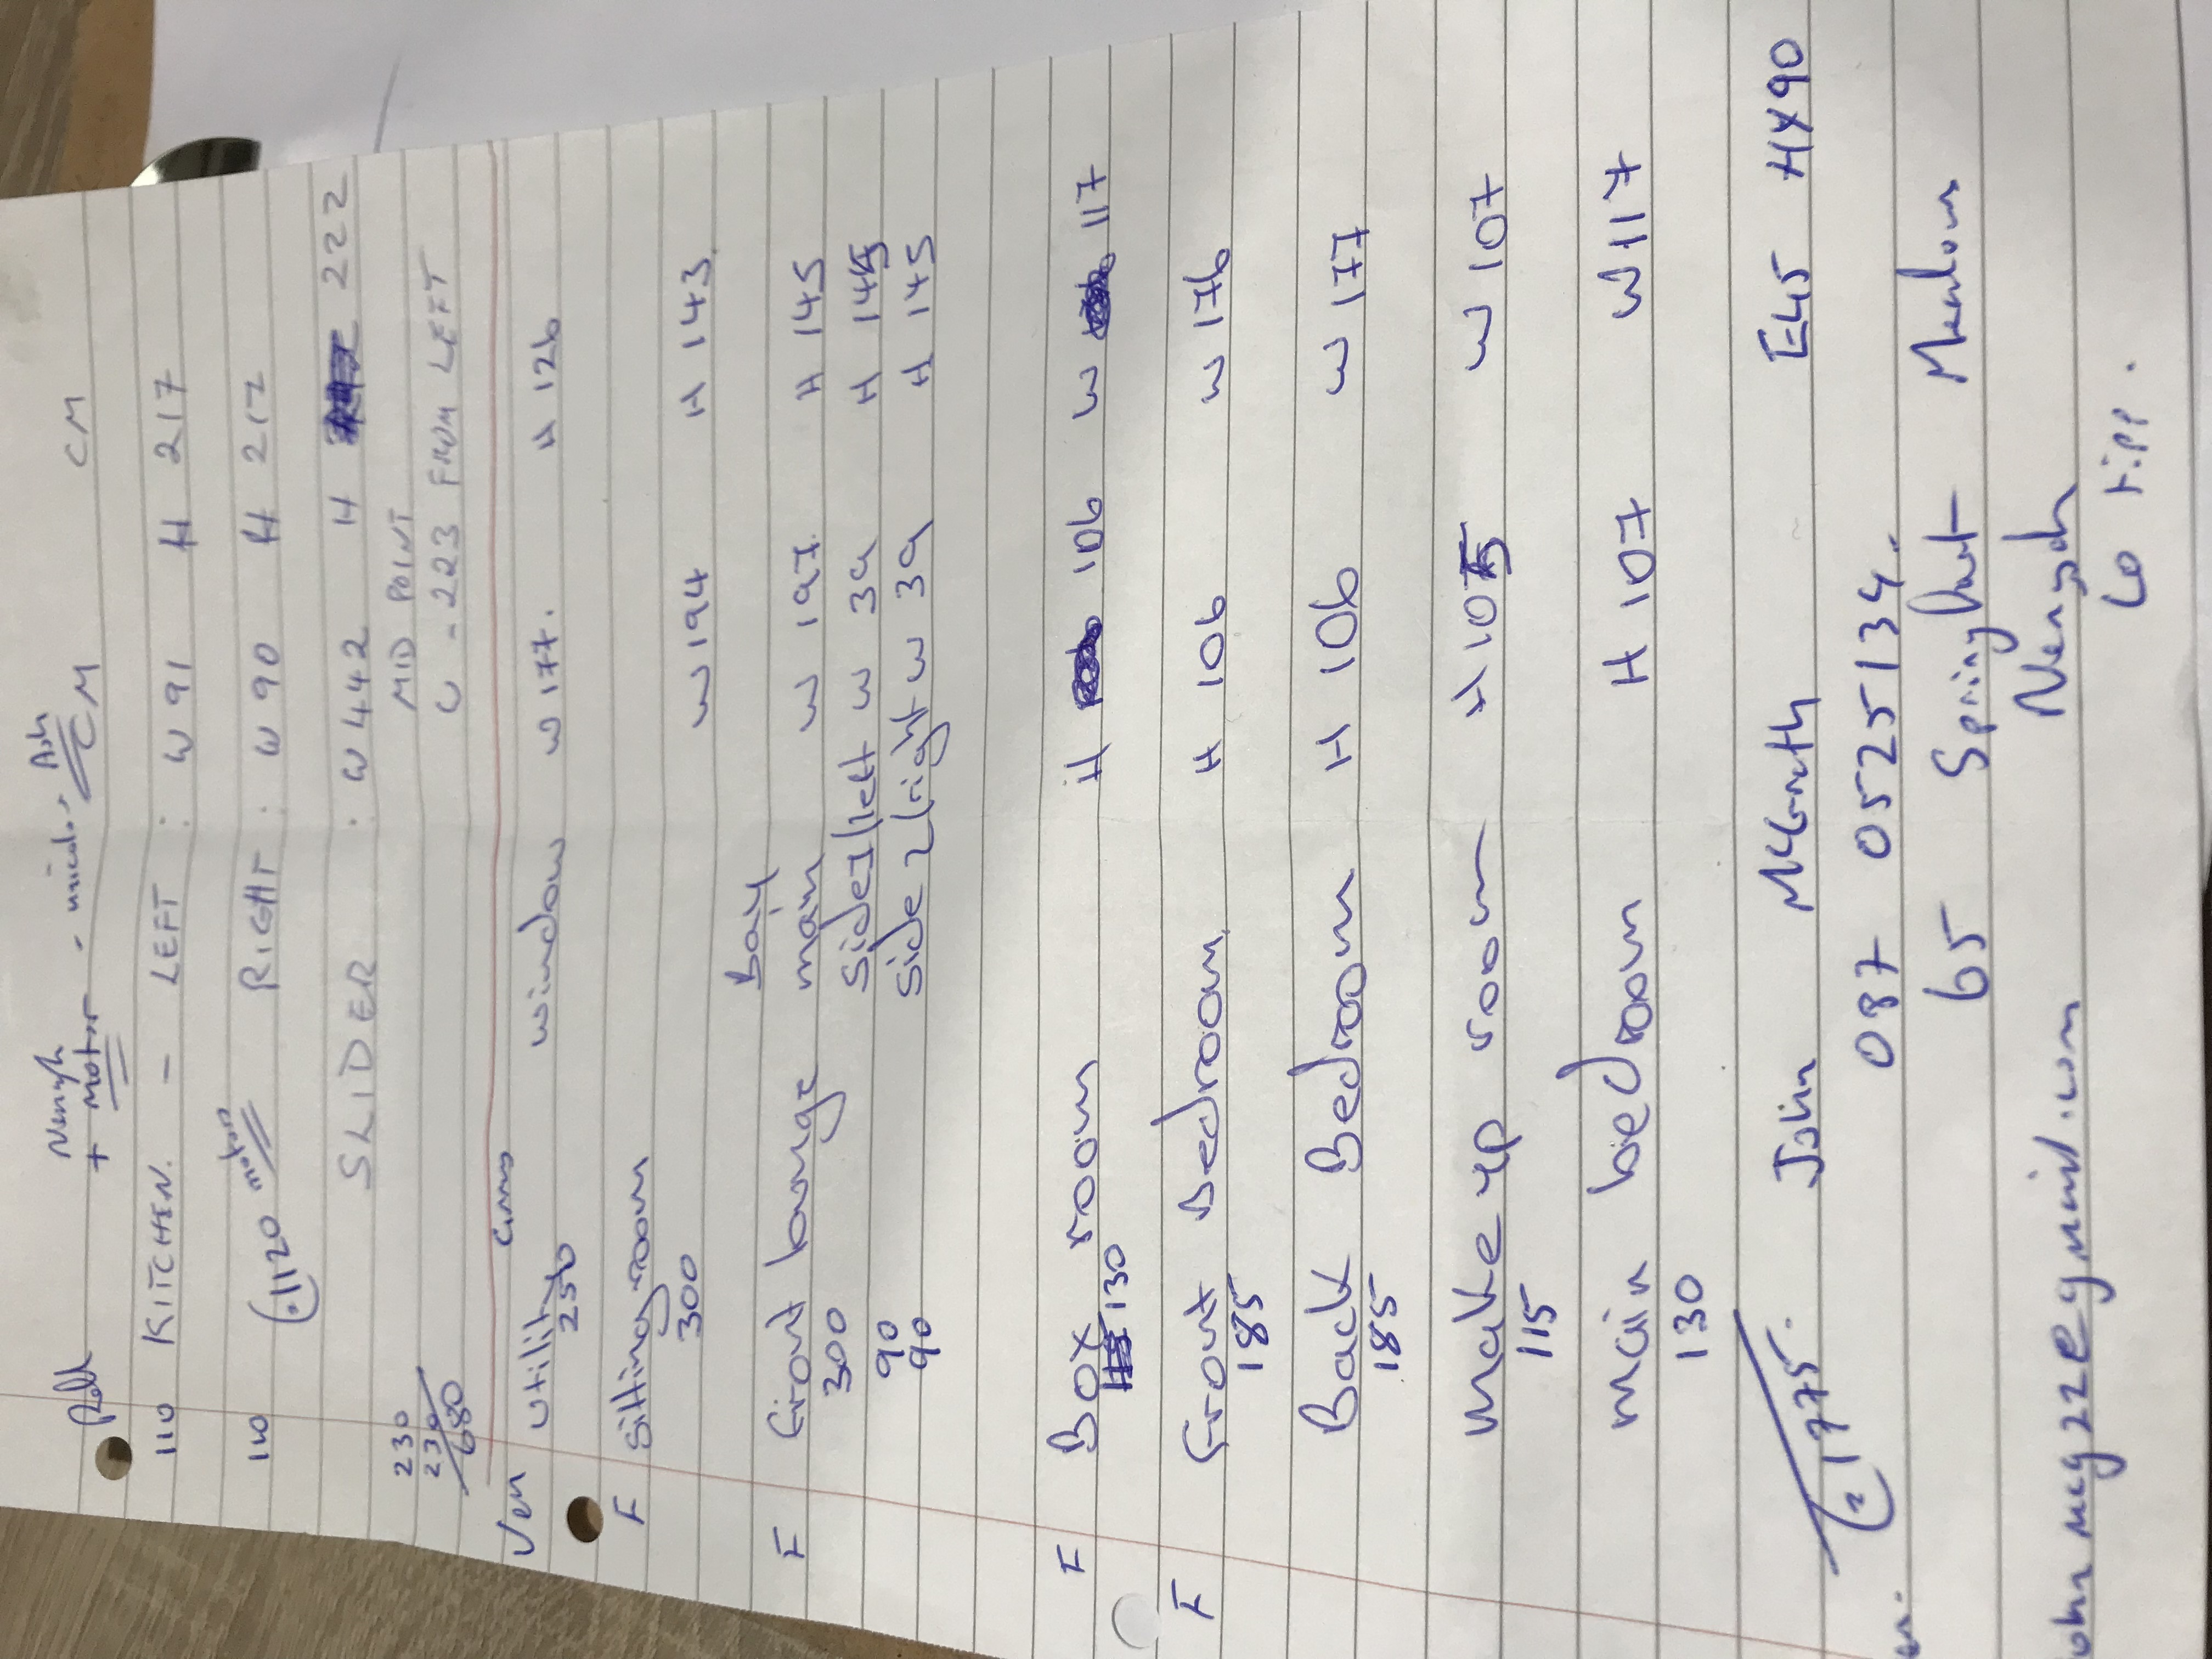 Nenagh Ash
Roller + Motor - unicolor CM CM
110 KITCHEN - LEFT : W 91 H 217
110 RIGHT : W 90 H 217
(:1120 "motors"
SLIDER : W 442 H 222
230 MID POINT
230 C - 223 FROM LEFT
680
cms
Ven utility window W 177. H 126
250
F sittingroom
300 W 194 H 143.
Bay
F Front lounge main W 197. H 145
300 side 1 left W 39 H 145
90 side 2 right W 39 H 145
90
F Box room H 106 W 117
130
F Front Bedroom H 106 W 176
185
Back Bedroom H 106 W 177
185
make up room H 105 W 107
115
main bedroom H 107 W 117
130
John McGrath E45 HX90
(: 1775. 087 0525134.
65 Springfort Meadows
Nenagh
ohnmcgzz@gmail.com Co Tipp.